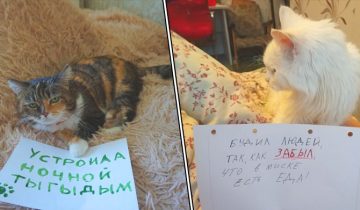 УСТРОИЛА
НОЧНОЙ
ТЫГЫДЫМ
БУДИЛ ЛЮДЕЙ,
ТАК, КАК ЗАБЫЛ,
ЧТО В МИСКЕ
ЕСТЬ ЕДА!